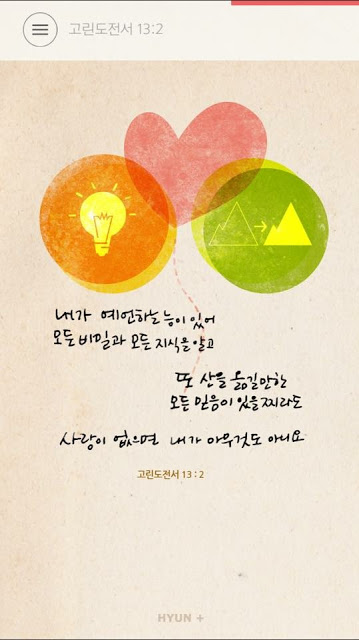 고린도전서 13:2
내가 예언하는 능이 있어
모든 비밀과 모든 지식을 알고
또 산을 옮길만한
모든 믿음이 있을찌라도
사랑이 없으면 내가 아무것도 아니요
고린도전서 13 : 2
HYUN +